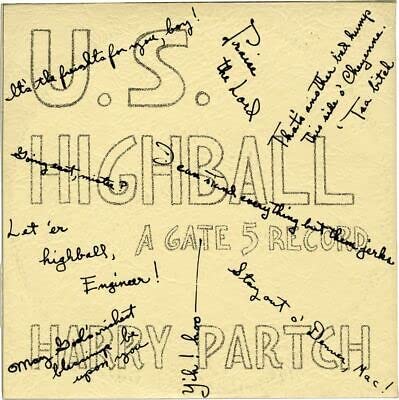 It's the freights for you, boy!
Praise
the Lord
That's another bad hump
this side o' Cheyenne.
'Tsa bitch
U.S.
HIGHBALL
A GATE 5 RECORD
HARRY PARTCH
Going east, mister?
I can stand everything but them jerks
Let 'er
highball,
Engineer!
Stay out o' Denver, Mac!
May God's richest
blessings be
upon you
Yike! hoo